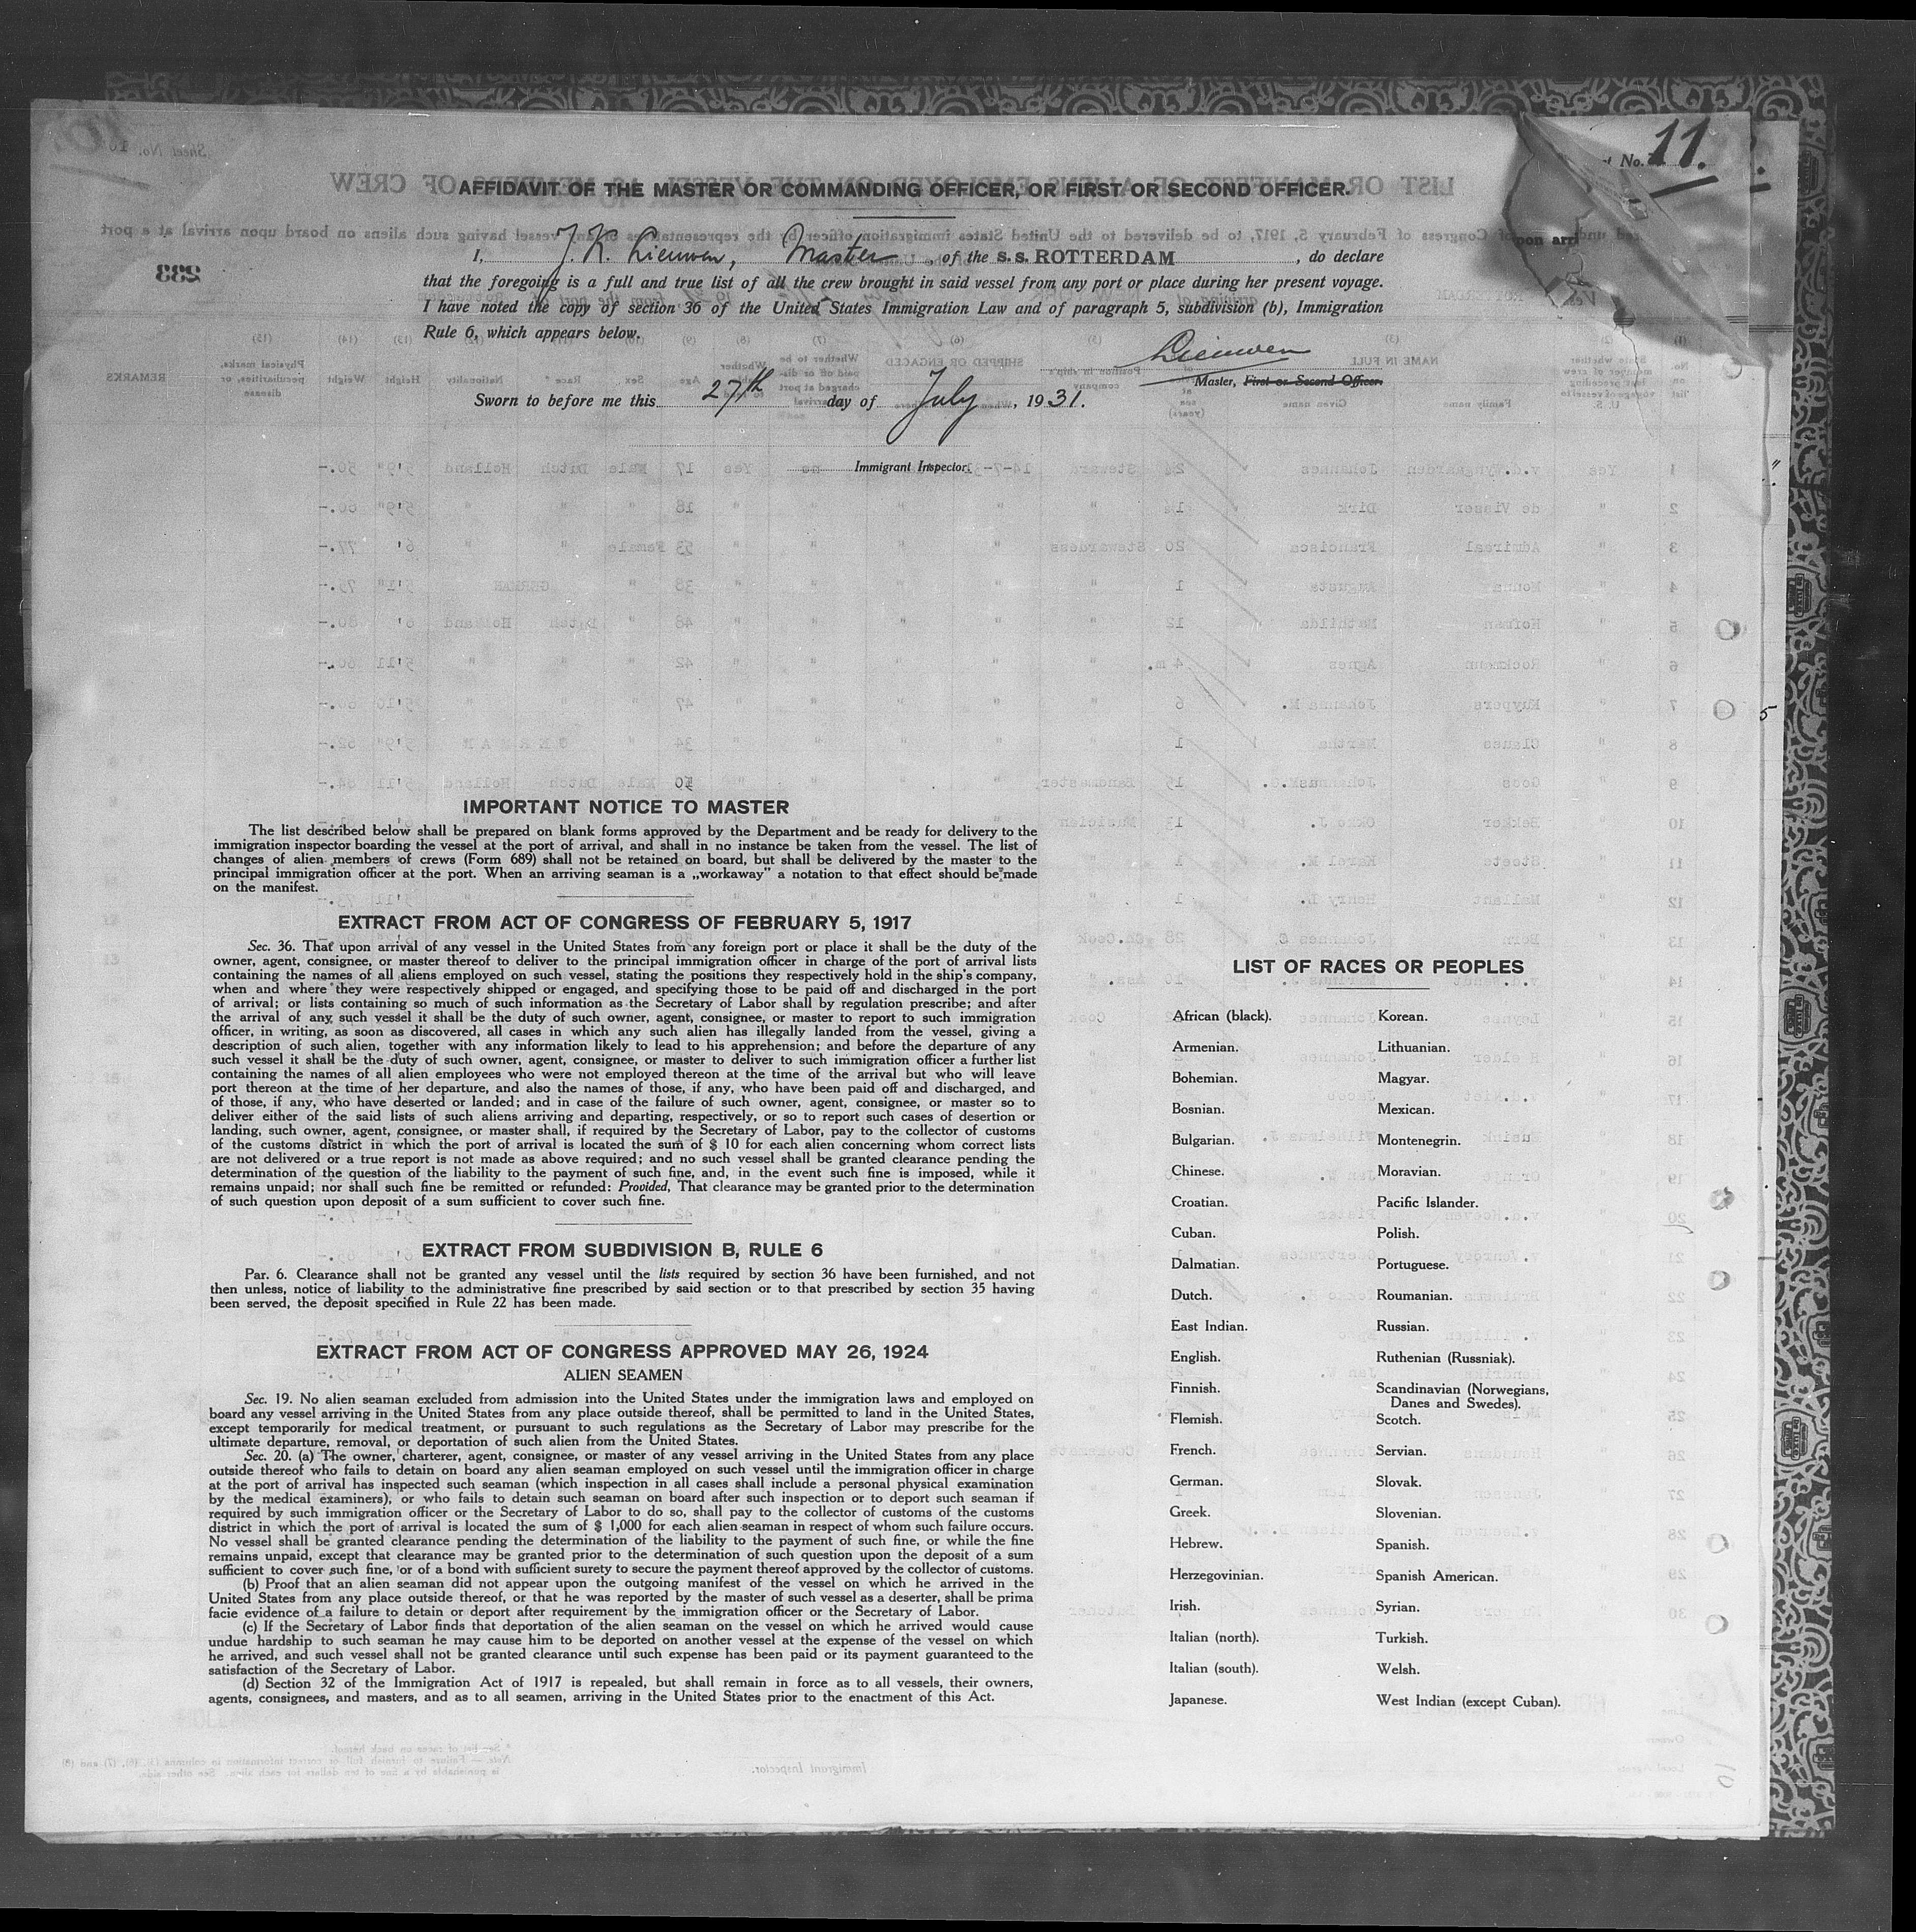 No. 11.
AFFIDAVIT OF THE MASTER OR COMMANDING OFFICER, OR FIRST OR SECOND OFFICER.
I, Master, of the S.S. ROTTERDAM, do declare
that the foregoing is a full and true list of all the crew brought in said vessel from any port or place during her present voyage.
I have noted the copy of section 36 of the United States Immigration Law and of paragraph 5, subdivision (b), Immigration
Rule 6, which appears below.
Master, First or Second Officer.
Sworn to before me this 27th day of July, 1931.
Immigrant Inspector.
IMPORTANT NOTICE TO MASTER
The list described below shall be prepared on blank forms approved by the Department and be ready for delivery to the
immigration inspector boarding the vessel at the port of arrival, and shall in no instance be taken from the vessel. The list of
changes of alien members of crews (Form 689) shall not be retained on board, but shall be delivered by the master to the
principal immigration officer at the port. When an arriving seaman is a „workaway" a notation to that effect should be made
on the manifest.
EXTRACT FROM ACT OF CONGRESS OF FEBRUARY 5, 1917
Sec. 36. That upon arrival of any vessel in the United States from any foreign port or place it shall be the duty of the
owner, agent, consignee, or master thereof to deliver to the principal immigration officer in charge of the port of arrival lists
containing the names of all aliens employed on such vessel, stating the positions they respectively hold in the ship's company,
when and where they were respectively shipped or engaged, and specifying those to be paid off and discharged in the port
of arrival; or lists containing so much of such information as the Secretary of Labor shall by regulation prescribe; and after
the arrival of any such vessel it shall be the duty of such owner, agent, consignee, or master to report to such immigration
officer, in writing, as soon as discovered, all cases in which any such alien has illegally landed from the vessel, giving a
description of such alien, together with any information likely to lead to his apprehension; and before the departure of any
such vessel it shall be the duty of such owner, agent, consignee, or master to deliver to such immigration officer a further list
containing the names of all alien employees who were not employed thereon at the time of the arrival but who will leave
port thereon at the time of her departure, and also the names of those, if any, who have been paid off and discharged, and
of those, if any, who have deserted or landed; and in case of the failure of such owner, agent, consignee, or master so to
deliver either of the said lists of such aliens arriving and departing, respectively, or so to report such cases of desertion or
landing, such owner, agent, consignee, or master shall, if required by the Secretary of Labor, pay to the collector of customs
of the customs district in which the port of arrival is located the sum of $ 10 for each alien concerning whom correct lists
are not delivered or a true report is not made as above required; and no such vessel shall be granted clearance pending the
determination of the question of the liability to the payment of such fine, and, in the event such fine is imposed, while it
remains unpaid; nor shall such fine be remitted or refunded: Provided, That clearance may be granted prior to the determination
of such question upon deposit of a sum sufficient to cover such fine.
EXTRACT FROM SUBDIVISION B, RULE 6
Par. 6. Clearance shall not be granted any vessel until the lists required by section 36 have been furnished, and not
then unless, notice of liability to the administrative fine prescribed by said section or to that prescribed by section 35 having
been served, the deposit specified in Rule 22 has been made.
EXTRACT FROM ACT OF CONGRESS APPROVED MAY 26, 1924
ALIEN SEAMEN
Sec. 19. No alien seaman excluded from admission into the United States under the immigration laws and employed on
board any vessel arriving in the United States from any place outside thereof, shall be permitted to land in the United States,
except temporarily for medical treatment, or pursuant to such regulations as the Secretary of Labor may prescribe for the
ultimate departure, removal, or deportation of such alien from the United States.
Sec. 20. (a) The owner, charterer, agent, consignee, or master of any vessel arriving in the United States from any place
outside thereof who fails to detain on board any alien seaman employed on such vessel until the immigration officer in charge
at the port of arrival has inspected such seaman (which inspection in all cases shall include a personal physical examination
by the medical examiners), or who fails to detain such seaman on board after such inspection or to deport such seaman if
required by such immigration officer or the Secretary of Labor to do so, shall pay to the collector of customs of the customs
district in which the port of arrival is located the sum of $ 1,000 for each alien seaman in respect of whom such failure occurs.
No vessel shall be granted clearance pending the determination of the liability to the payment of such fine, or while the fine
remains unpaid, except that clearance may be granted prior to the determination of such question upon the deposit of a sum
sufficient to cover such fine, or of a bond with sufficient surety to secure the payment thereof approved by the collector of customs.
(b) Proof that an alien seaman did not appear upon the outgoing manifest of the vessel on which he arrived in the
United States from any place outside thereof, or that he was reported by the master of such vessel as a deserter, shall be prima
facie evidence of a failure to detain or deport after requirement by the immigration officer or the Secretary of Labor.
(c) If the Secretary of Labor finds that deportation of the alien seaman on the vessel on which he arrived would cause
undue hardship to such seaman he may cause him to be deported on another vessel at the expense of the vessel on which
he arrived, and such vessel shall not be granted clearance until such expense has been paid or its payment guaranteed to the
satisfaction of the Secretary of Labor.
(d) Section 32 of the Immigration Act of 1917 is repealed, but shall remain in force as to all vessels, their owners,
agents, consignees, and masters, and as to all seamen, arriving in the United States prior to the enactment of this Act.
LIST OF RACES OR PEOPLES
African (black).
Armenian.
Bohemian.
Bosnian.
Bulgarian.
Chinese.
Croatian.
Cuban.
Dalmatian.
Dutch.
East Indian.
English.
Finnish.
Flemish.
French.
German.
Greek.
Hebrew.
Herzegovinian.
Irish.
Italian (north).
Italian (south).
Japanese.
Korean.
Lithuanian.
Magyar.
Mexican.
Montenegrin.
Moravian.
Pacific Islander.
Polish.
Portuguese.
Roumanian.
Russian.
Ruthenian (Russniak).
Scandinavian (Norwegians,
Danes and Swedes).
Scotch.
Servian.
Slovak.
Slovenian.
Spanish.
Spanish American.
Syrian.
Turkish.
Welsh.
West Indian (except Cuban).